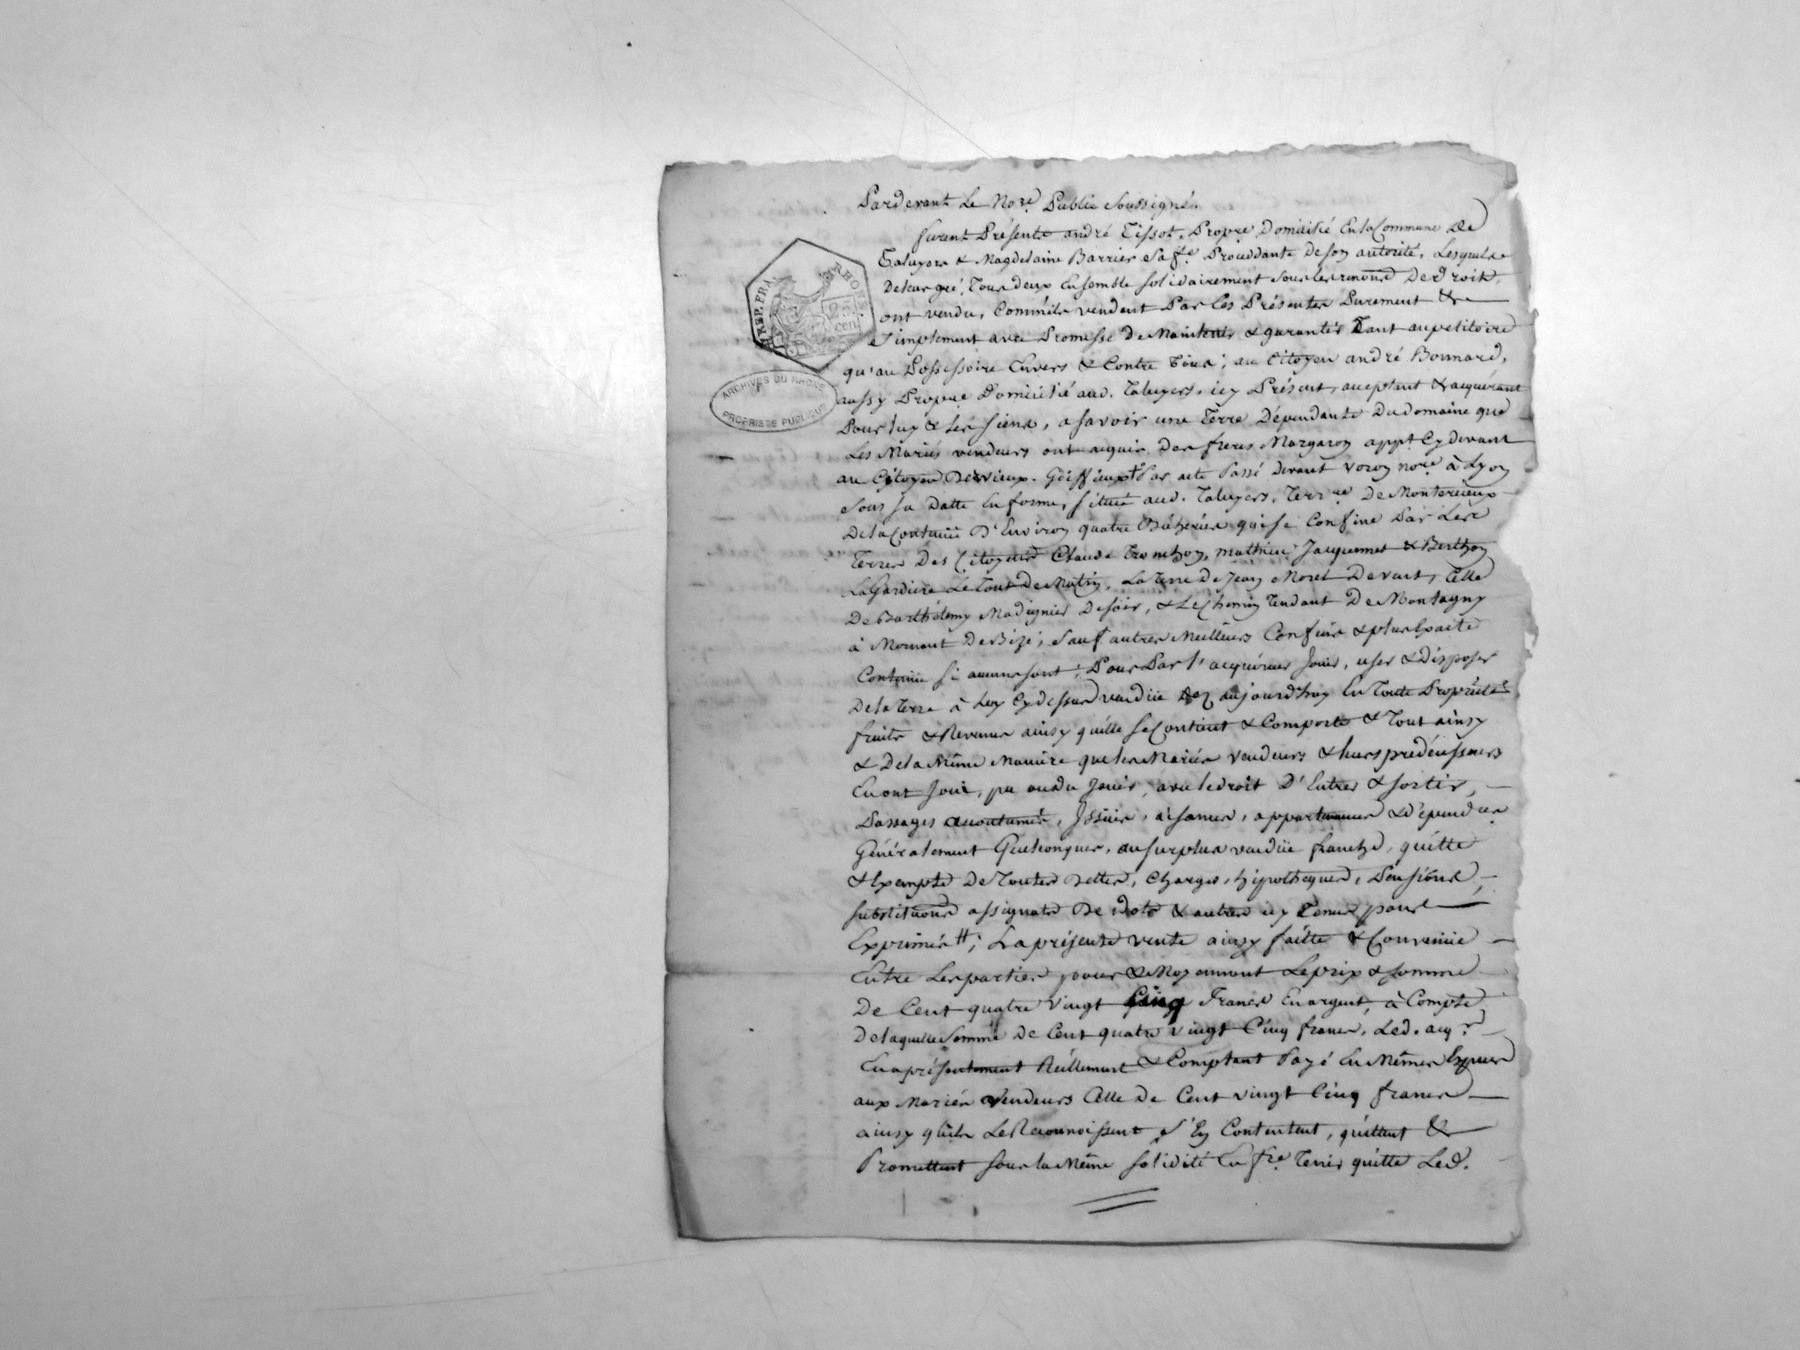 Pardevant Le No.re Public Soussigné.
furent Présents andré Tissot, Propre. Domicilié En la Commune De
Taluyers & Magdelaine Barrier Sa fe. Proceddante De son autorité, Lesquels
De leur gré, Tous deux Ensemble solidairement sous les renonons De Droit,
ont vendu, Comm'ils vendent Par Ces Présentes Purement &
Simplement avec Promesse De Maintenir & garantir Tant au petitoire
REP. FRA.
RHONE
25 cen.
qu'au Possessoire Envers & Contre Tous; au Citoyen andré Bonnard,
ARCHIVES DU RHONE
PROPRIETE PUBLIQUE
aussy Propre Domicilié aud. Taluyers, icy Présent, acceptant & acquérant
Pour luy & les siens, a savoir une Terre Dépendante Du domaine que
Les Mariés vendeurs ont acquis des freres Margaron appt. Cy devant
au Citoyen Par acte Passé devant Voron nore à Lyon
Sous sa Datte En forme, située aud. Taluyers, Terr.re De Monterieux
De la Contenue D'Environ quatre Bicherées qui se Confine Par Les
Terres Des Citoyens Claude mathieu Jacquemet & Berthon
La Gardiere Le Tout De Matin, La Terre De Jean Morel De vent, Celle
De Barthélemy Madignier De soir, & Le Chemin Tendant De Montagny
à Mornant De Bize, Sauf autres Meilleurs Confins & plus Exacte
Contenue si aucuns sont; Pour Par l'acquéreur Jouir, user & Disposer
De la Terre à Luy Cy dessus vendüe dez aujourd'huy En Toute Propriété
fruits & Revenus ainsy qu'elle se Contient & Comporte & Tout ainsy
& De la Même Maniere que les Mariés Vendeurs & leurs prédécesseurs
En ont Joui, pu ou du Jouir, avec le droit D'Entrer & sortir,
Passages accoutumés, Issües, aisances, appartenances & dépend.ces
Généralement Quelconques, au surplus vendüe franche, quitte
& Exempte De Toutes Dettes, Charges, hipotheques, Pensions,
substituons assignats De dots & autres icy Tenus pour
Exprimés; La présente vente ainsy faitte & Convenüe
Entre Les parties pour & Moyennant Le prix & somme
De Cent quatre Vingt Cinq Francs En argent, à Compte
De laquelle Somme De Cent quatre vingt Cinq francs, Led. acq.r
En a présentement Réellement & Comptant Payé En Mêmes Espèces
aux Mariés Vendeurs Celle De Cent vingt Cinq francs
ainsy qu'ils Le Reconnoissent S'En Contentent, quittent &
Promettent sous la Même solidité En fre. Tenir quitte Led.